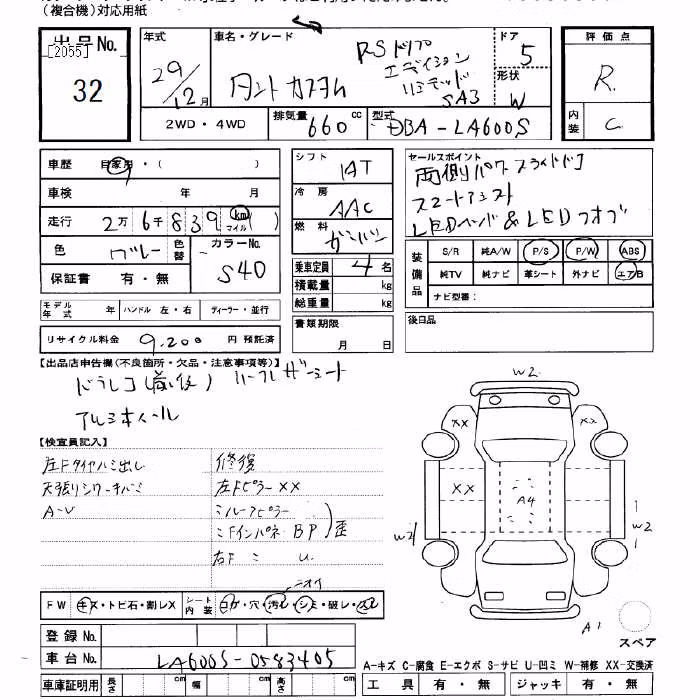 (複合機)対応用紙
出品No.
[2055]
32
年式
29/12月
車名・グレード
タントカスタム
RSトップ
エディション
リミテッド
SA3
ドア
5
形状
W
評価点
R
内装
C
2WD・4WD
排気量 660 cc
型式 DBA-LA600S
車歴 自家用・( )
車検 年 月
走行 2万6千839 km マイル( )
色 グレー
色替
カラーNo.
S40
保証書 有・無
シフト
IAT
冷房
AAC
燃料
ガソリン
乗車定員 4名
積載量 kg
総重量 kg
セールスポイント
両側パワースライドドア
スマートアシスト
LEDヘッド&LEDフォグ
装備品
S/R 純A/W P/S P/W ABS
純TV 純ナビ 革シート 外ナビ エアB
ナビ型番:
モデル年式 年
ハンドル 左・右
ディーラー・並行
リサイクル料金 9,200 円 預託済
書類期限
月 日
後日品
【出品店申告欄(不良箇所・欠品・注意事項等)】
ドラレコ(前後) ハーフレザーシート
アルミホイール
【検査員記入】
左Fタイヤハミ出し
天張りシワ・キバミ
A-V
修復
左Fピラー XX
ミルーフピラー
ミFインパネ BP
歪
右F ミ u.
ニオイ
W2
XX
XX
XX
A4
W2
W2
A1
スペア
FW キズ・トビ石・割レX
シート内装 コゲ・穴・汚レ・シミ・破レ・スレ
登録No.
車台No. LA600S-0583405
車庫証明用 長さ cm 幅 cm 高さ cm
A-キズ C-腐食 E-エクボ S-サビ U-凹ミ W-補修 XX-交換済
工具 有・無 ジャッキ 有・無